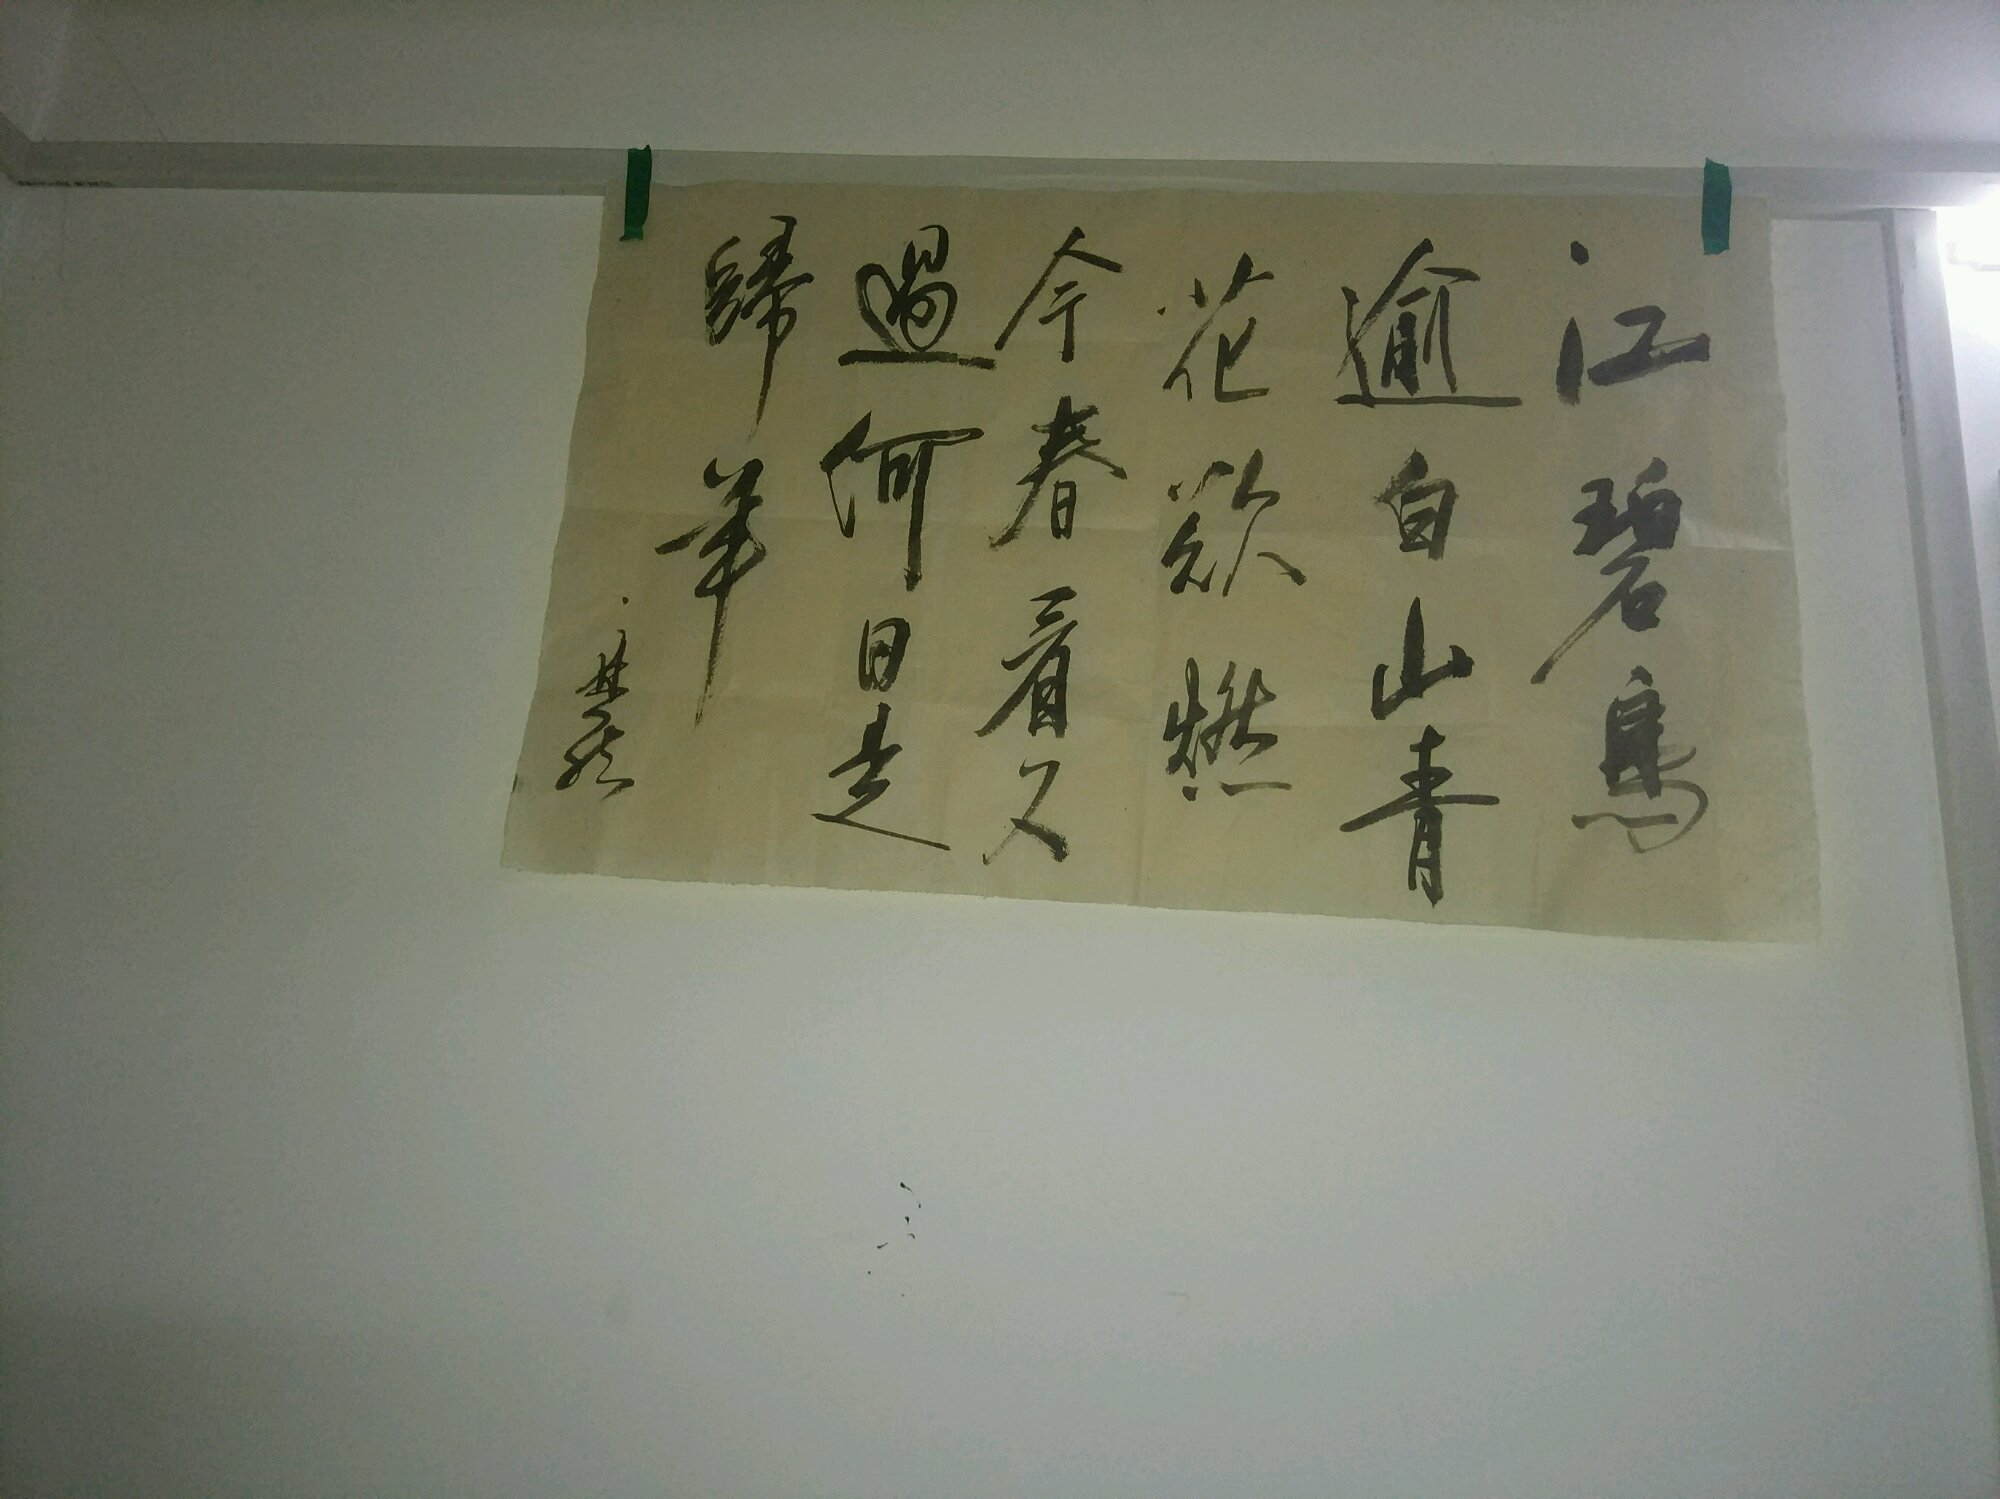 江碧鳥
逾白山青
花欲燃
今春看又
過何日是
歸年